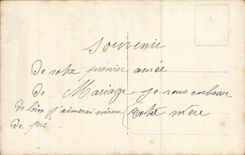 Souvenir
de votre premier année
de Mariage je vous embrasse
de loin j'aimerai mieux
de pré
votre mère